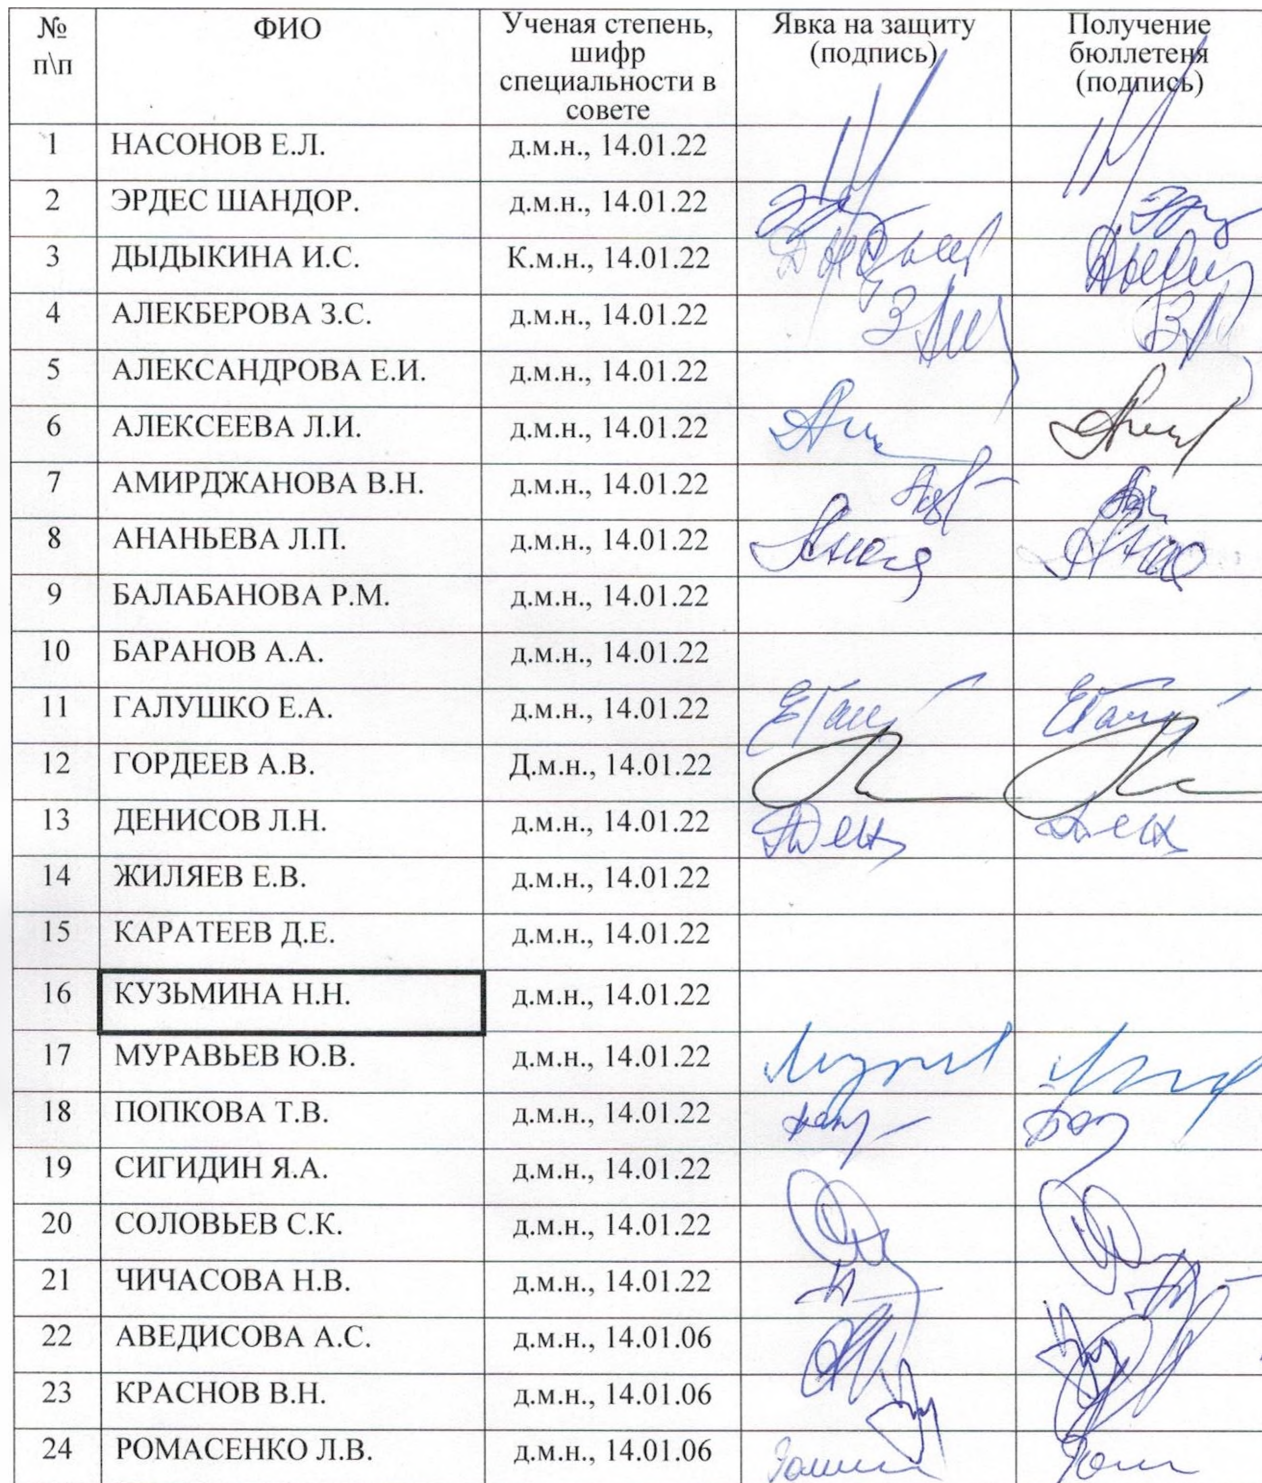 № п\п ФИО Ученая степень, шифр специальности в совете Явка на защиту (подпись) Получение бюллетеня (подпись)
1 НАСОНОВ Е.Л. д.м.н., 14.01.22
2 ЭРДЕС ШАНДОР. д.м.н., 14.01.22
3 ДЫДЫКИНА И.С. К.м.н., 14.01.22
4 АЛЕКБЕРОВА З.С. д.м.н., 14.01.22
5 АЛЕКСАНДРОВА Е.И. д.м.н., 14.01.22
6 АЛЕКСЕЕВА Л.И. д.м.н., 14.01.22
7 АМИРДЖАНОВА В.Н. д.м.н., 14.01.22
8 АНАНЬЕВА Л.П. д.м.н., 14.01.22
9 БАЛАБАНОВА Р.М. д.м.н., 14.01.22
10 БАРАНОВ А.А. д.м.н., 14.01.22
11 ГАЛУШКО Е.А. д.м.н., 14.01.22
12 ГОРДЕЕВ А.В. Д.м.н., 14.01.22
13 ДЕНИСОВ Л.Н. д.м.н., 14.01.22
14 ЖИЛЯЕВ Е.В. д.м.н., 14.01.22
15 КАРАТЕЕВ Д.Е. д.м.н., 14.01.22
16 КУЗЬМИНА Н.Н. д.м.н., 14.01.22
17 МУРАВЬЕВ Ю.В. д.м.н., 14.01.22
18 ПОПКОВА Т.В. д.м.н., 14.01.22
19 СИГИДИН Я.А. д.м.н., 14.01.22
20 СОЛОВЬЕВ С.К. д.м.н., 14.01.22
21 ЧИЧАСОВА Н.В. д.м.н., 14.01.22
22 АВЕДИСОВА А.С. д.м.н., 14.01.06
23 КРАСНОВ В.Н. д.м.н., 14.01.06
24 РОМАСЕНКО Л.В. д.м.н., 14.01.06